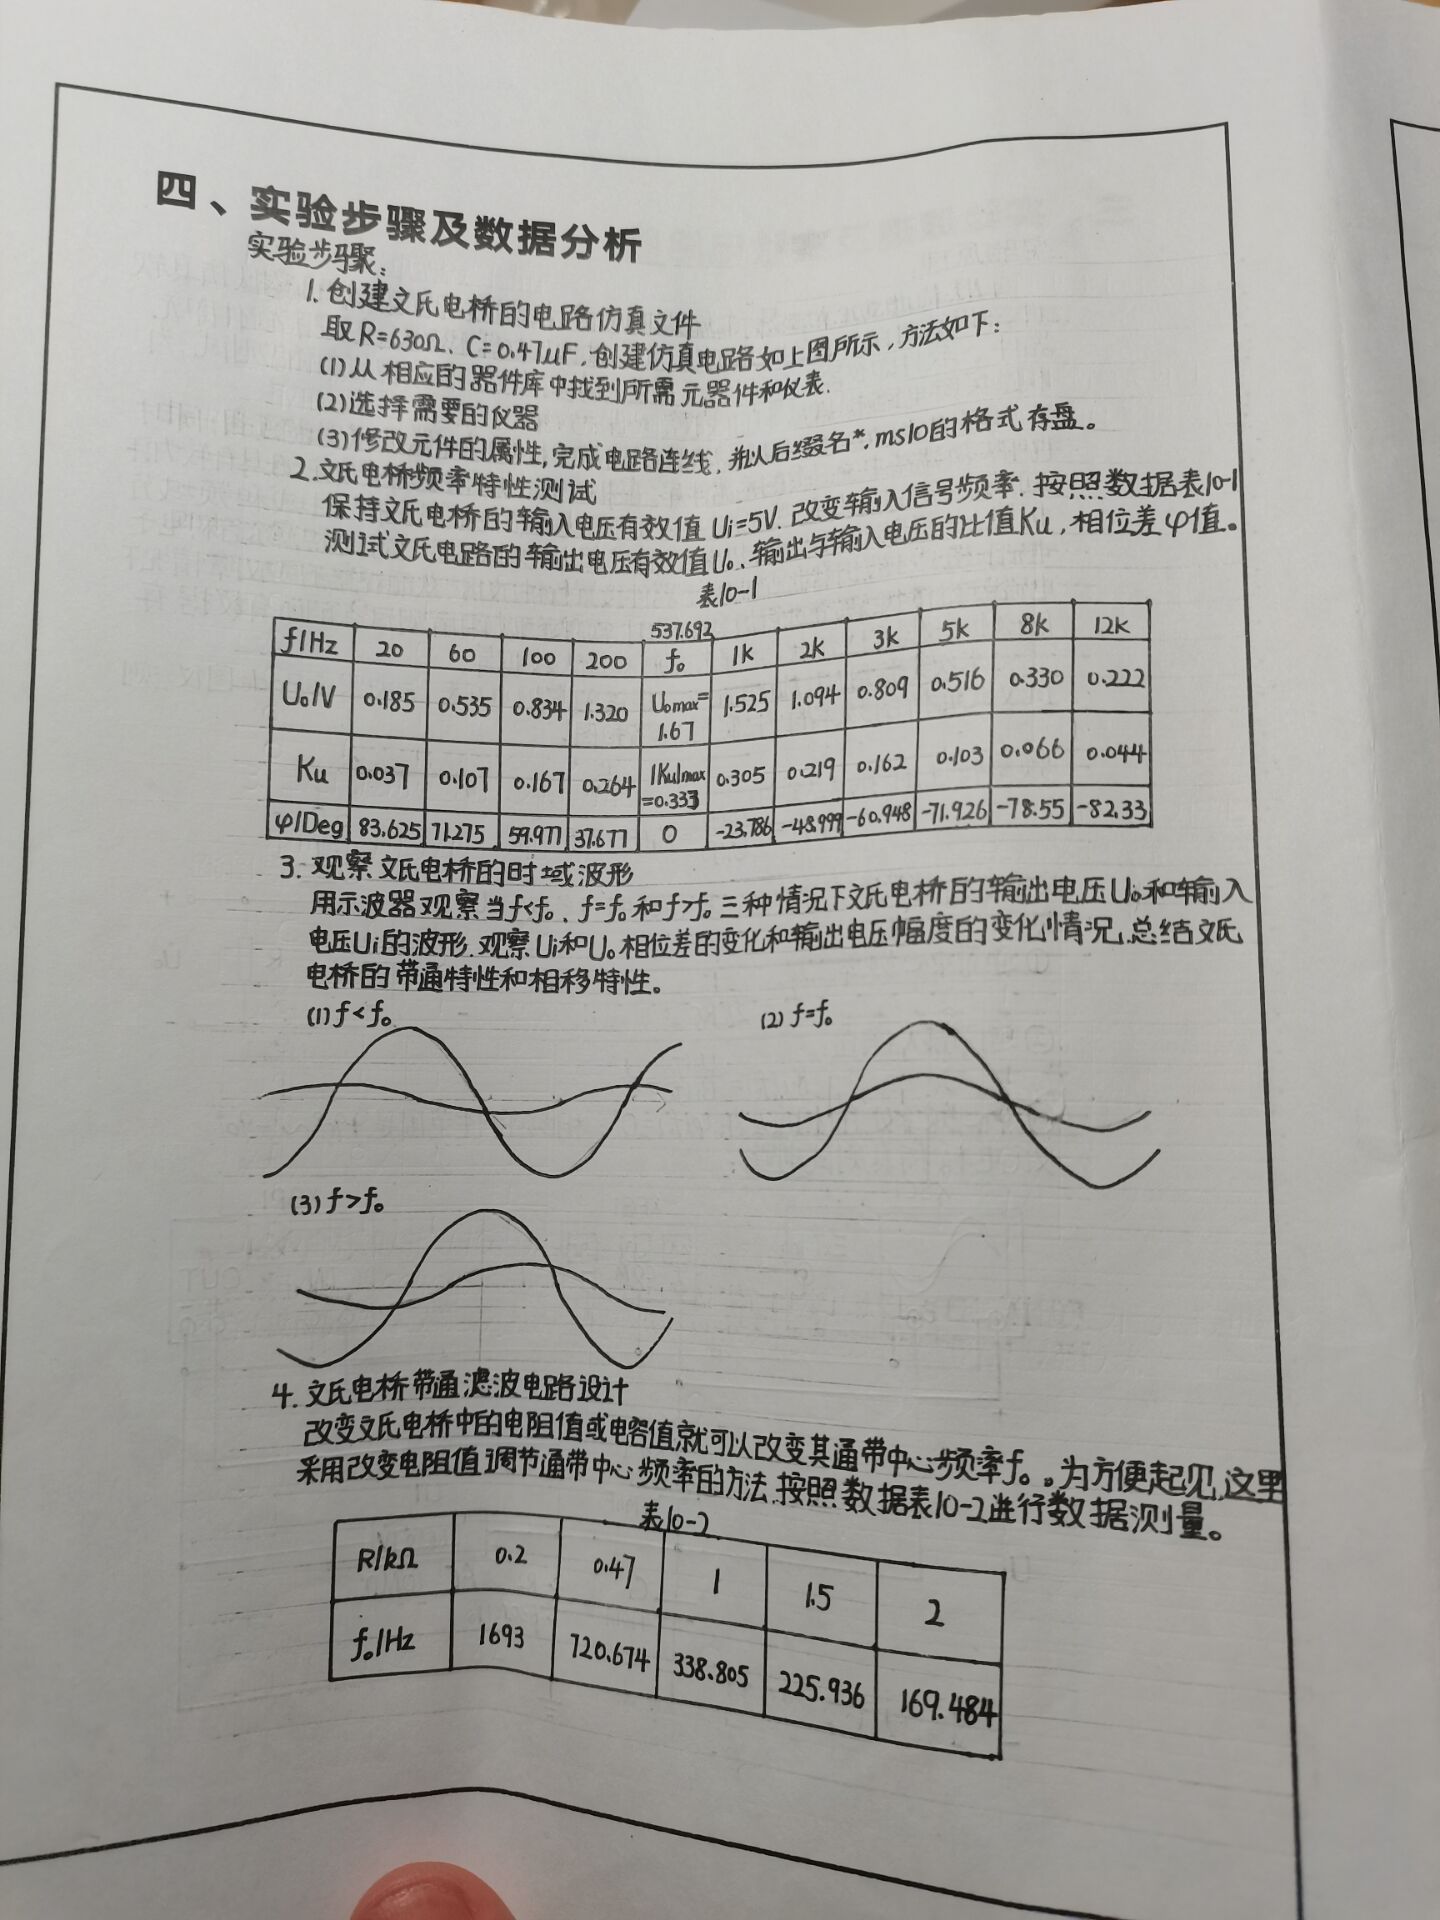 四、实验步骤及数据分析
实验步骤:
1. 创建文氏电桥的电路仿真文件
取R=630Ω、C=0.47μF,创建仿真电路如上图所示,方法如下:
(1)从相应的器件库中找到所需元器件和仪表.
(2)选择需要的仪器
(3)修改元件的属性,完成电路连线,并以后缀名*.ms10的格式存盘。
2.文氏电桥频率特性测试
保持文氏电桥的输入电压有效值Ui=5V.改变输入信号频率.按照数据表10-1
测试文氏电路的输出电压有效值U₀、输出与输入电压的比值Ku,相位差φ值。
表10-1
537.692
f/Hz 20 60 100 200 f₀ 1k 2k 3k 5k 8k 12k
U₀/V 0.185 0.535 0.834 1.320 U₀max=1.67 1.525 1.094 0.809 0.516 0.330 0.222
Ku 0.037 0.107 0.167 0.264 |Ku|max=0.333 0.305 0.219 0.162 0.103 0.066 0.044
φ/Deg 83.625 71.275 59.977 37.677 0 -23.786 -48.999 -60.948 -71.926 -78.55 -82.33
3. 观察文氏电桥的时域波形
用示波器观察当f<f₀、f=f₀和f>f₀三种情况下文氏电桥的输出电压U₀和输入
电压Ui的波形.观察Ui和U₀相位差的变化和输出电压幅度的变化情况.总结文氏
电桥的带通特性和相移特性。
(1) f<f₀
(2) f=f₀
(3) f>f₀
4. 文氏电桥带通滤波电路设计
改变文氏电桥中的电阻值或电容值就可以改变其通带中心频率f₀。为方便起见,这里
采用改变电阻值调节通带中心频率的方法.按照数据表10-2进行数据测量。
表10-2
R/kΩ 0.2 0.47 1 1.5 2
f₀/Hz 1693 720.674 338.805 225.936 169.484